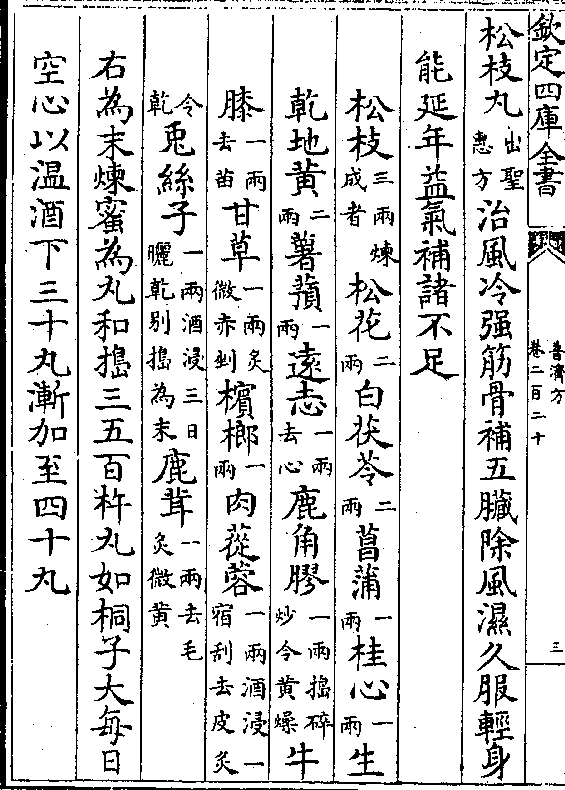 欽定四庫全書
普濟方
卷二百二十
三
松枝丸出聖惠方治風冷强筋骨補五臟除風濕久服輕身
能延年益氣補諸不足
松枝三兩煉成者松花二兩白茯苓二兩菖蒲一兩桂心一兩生
乾地黄二兩薯蕷一兩遠志一兩去心鹿角膠一兩搗碎炒令黄燥牛
膝一兩去苗甘草一兩炙微赤剉檳榔一兩肉蓯蓉一兩酒浸一宿刮去皮炙
令乾兎絲子一兩酒浸三日曬乾别搗為末鹿茸一兩去毛炙微黄
右為末煉蜜為丸和搗三五百杵丸如桐子大每日
空心以温酒下三十丸漸加至四十丸